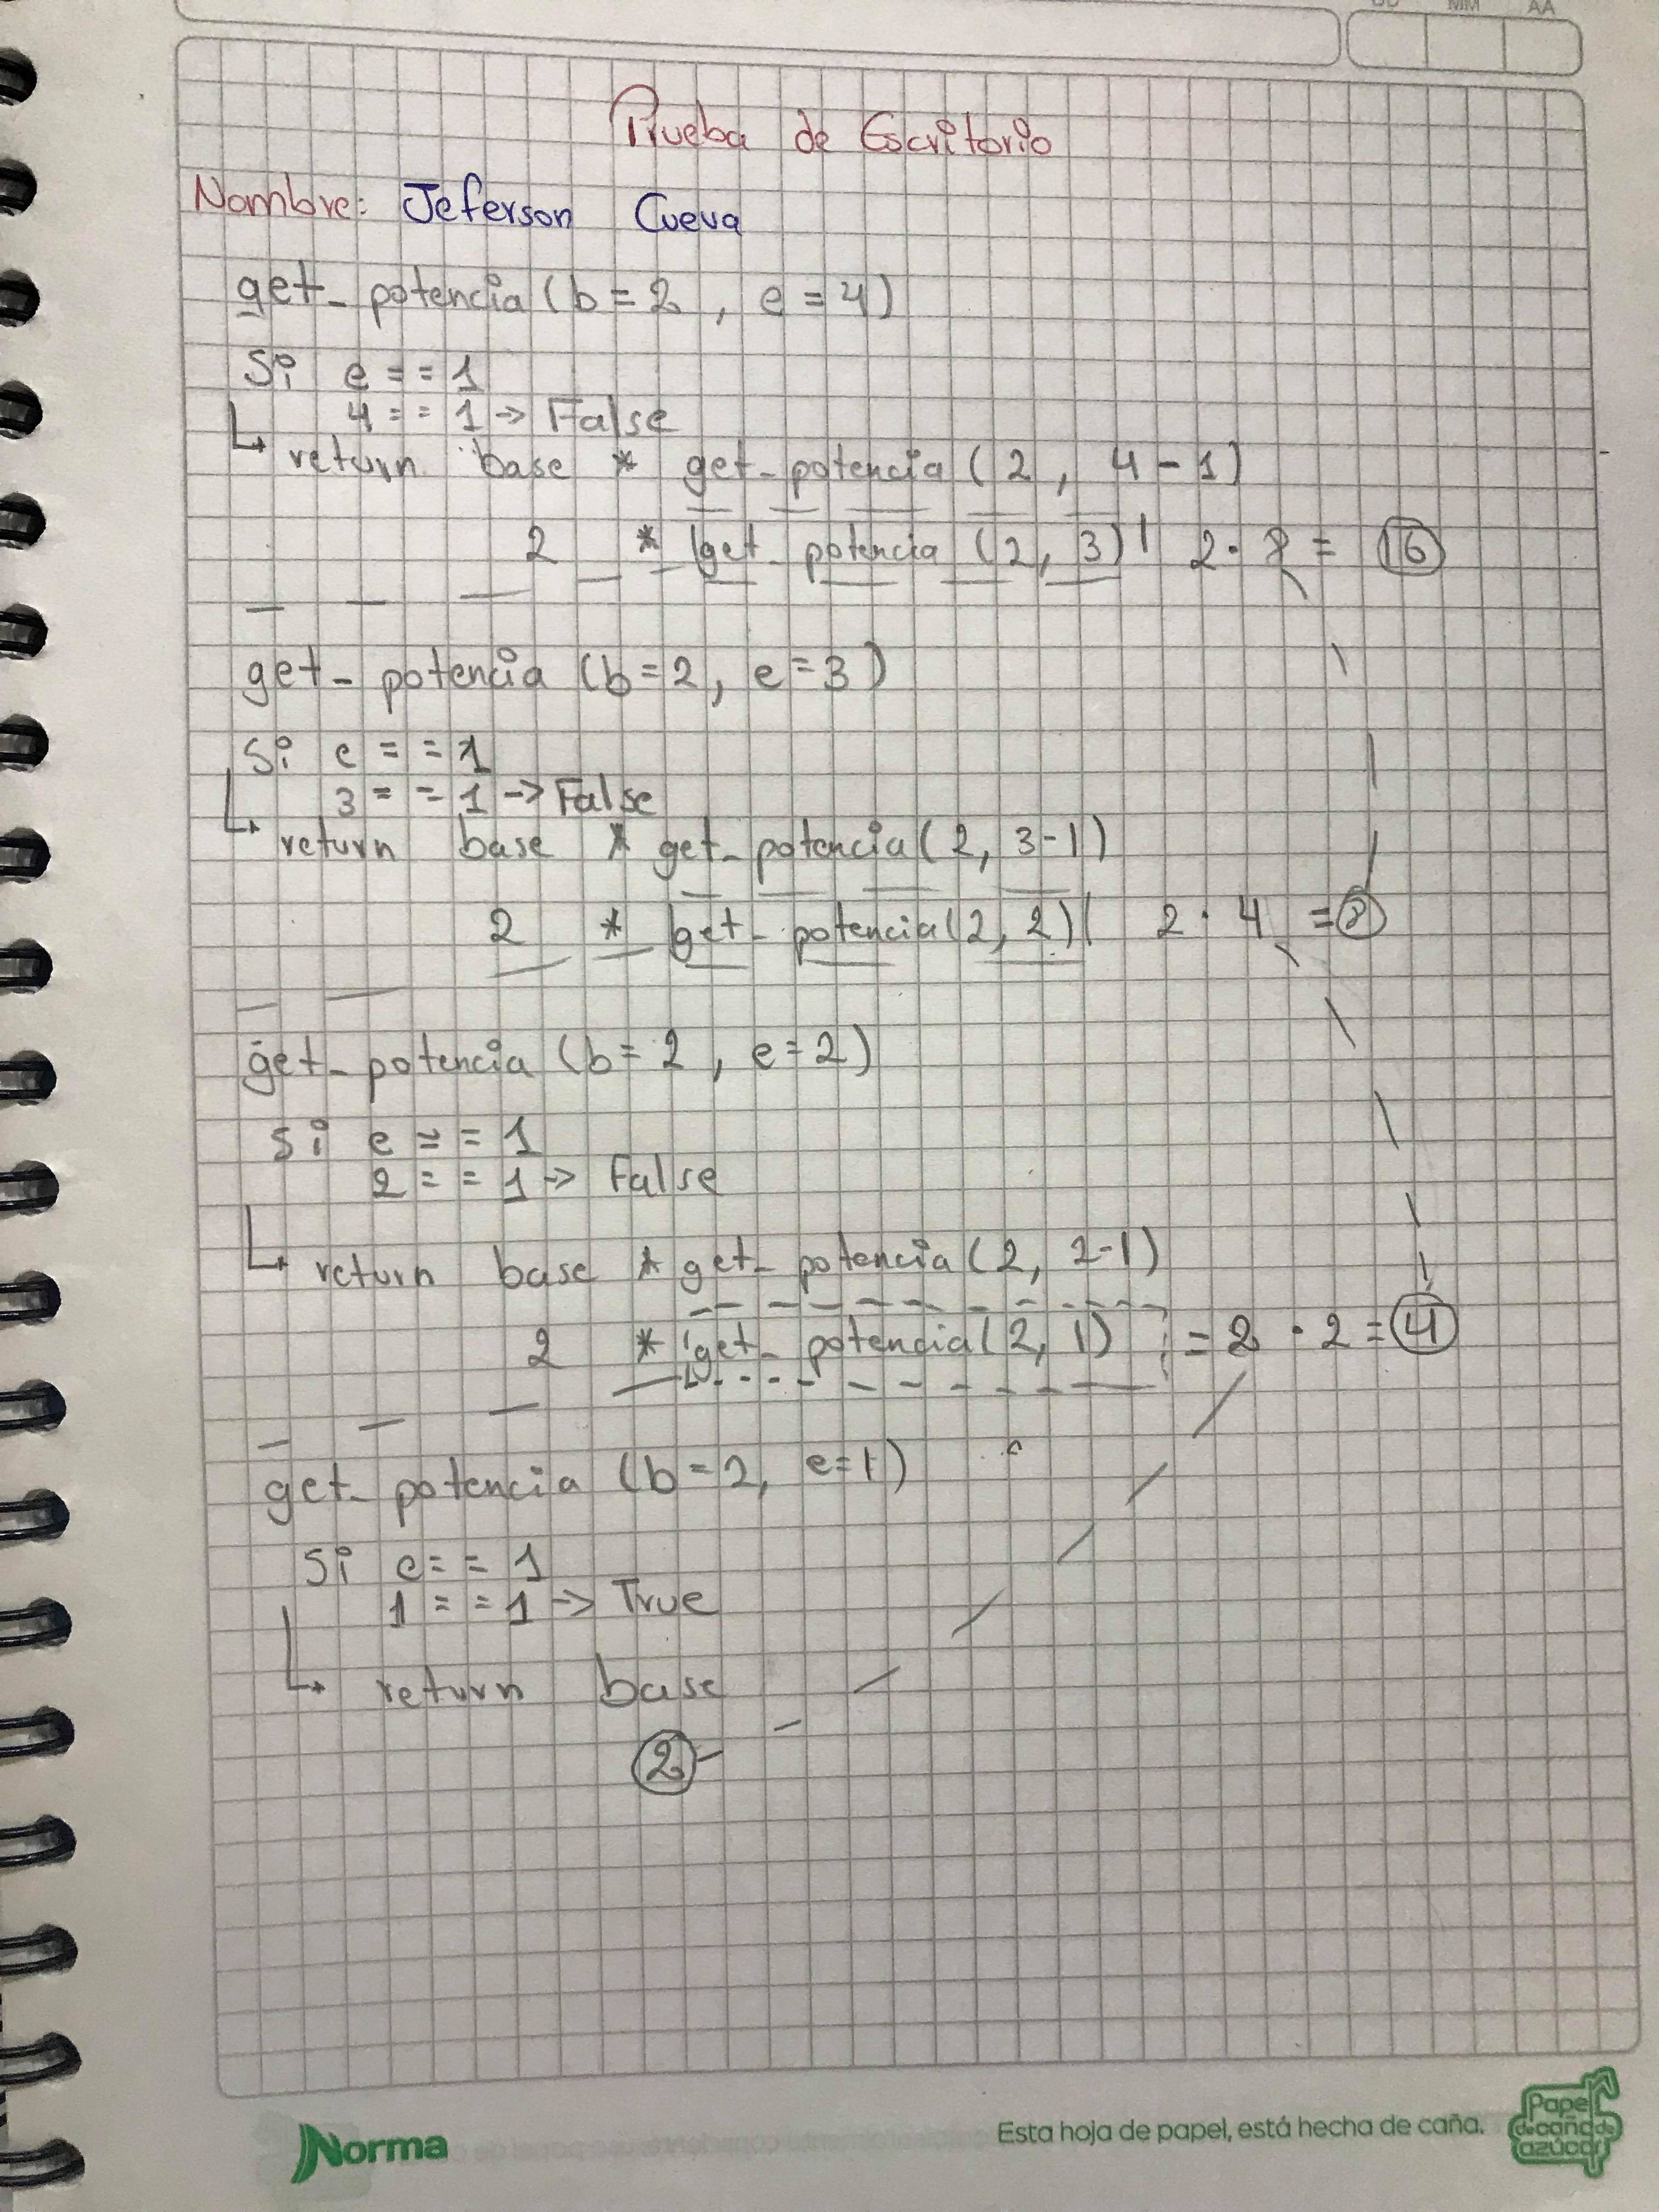 DD MM AA
Prueba de Escritorio
Nombre: Jeferson Cueva
get_potencia(b=2, e=4)
Si e==1
4==1->False
return base * get_potencia(2, 4-1)
2 * get_potencia(2, 3) 2·8=16
get_potencia(b=2, e=3)
Si e==1
3==1->False
return base * get_potencia(2, 3-1)
2 * get_potencia(2, 2) 2·4=8
get_potencia(b=2, e=2)
Si e==1
2==1->False
return base * get_potencia(2, 2-1)
2 * get_potencia(2, 1) =2·2=4
get_potencia(b=2, e=1)
Si e==1
1==1->True
return base
2
Norma
Esta hoja de papel, está hecha de caña.
Papel
de caña de
azúcar